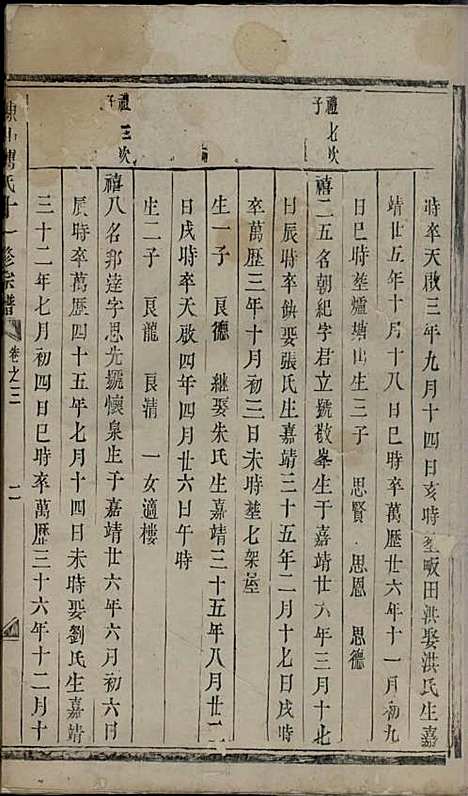 時卒天啟三年九月十四日亥時塟畈田洪娶洪氏生嘉
靖廿五年十月十八日酉時卒萬歷廿六年十一月初九
日巳時塟爐塘山生三子 思賢 思恩 思德
禮七次
子
禧二五名朝紀字君立號敬峯生于嘉靖廿六年三月十七
日辰時卒缺娶張氏生嘉靖三十五年二月十七日戌時
卒萬歷三年十月初三日未時塟七架屋
生一子 良德 繼娶朱氏生嘉靖三十五年八月廿二
日戌時卒天啟四年四月廿六日午時
生二子 良龍 良清 一女適樓
禮三次
子
禧八名邦達字思先號懷泉生于嘉靖廿六年六月初六日
辰時卒萬歷四十五年七月十四日未時娶劉氏生嘉靖
三十二年七月初四日巳時卒萬歷三十六年十二月十
傅氏十一修宗譜 卷之三 二